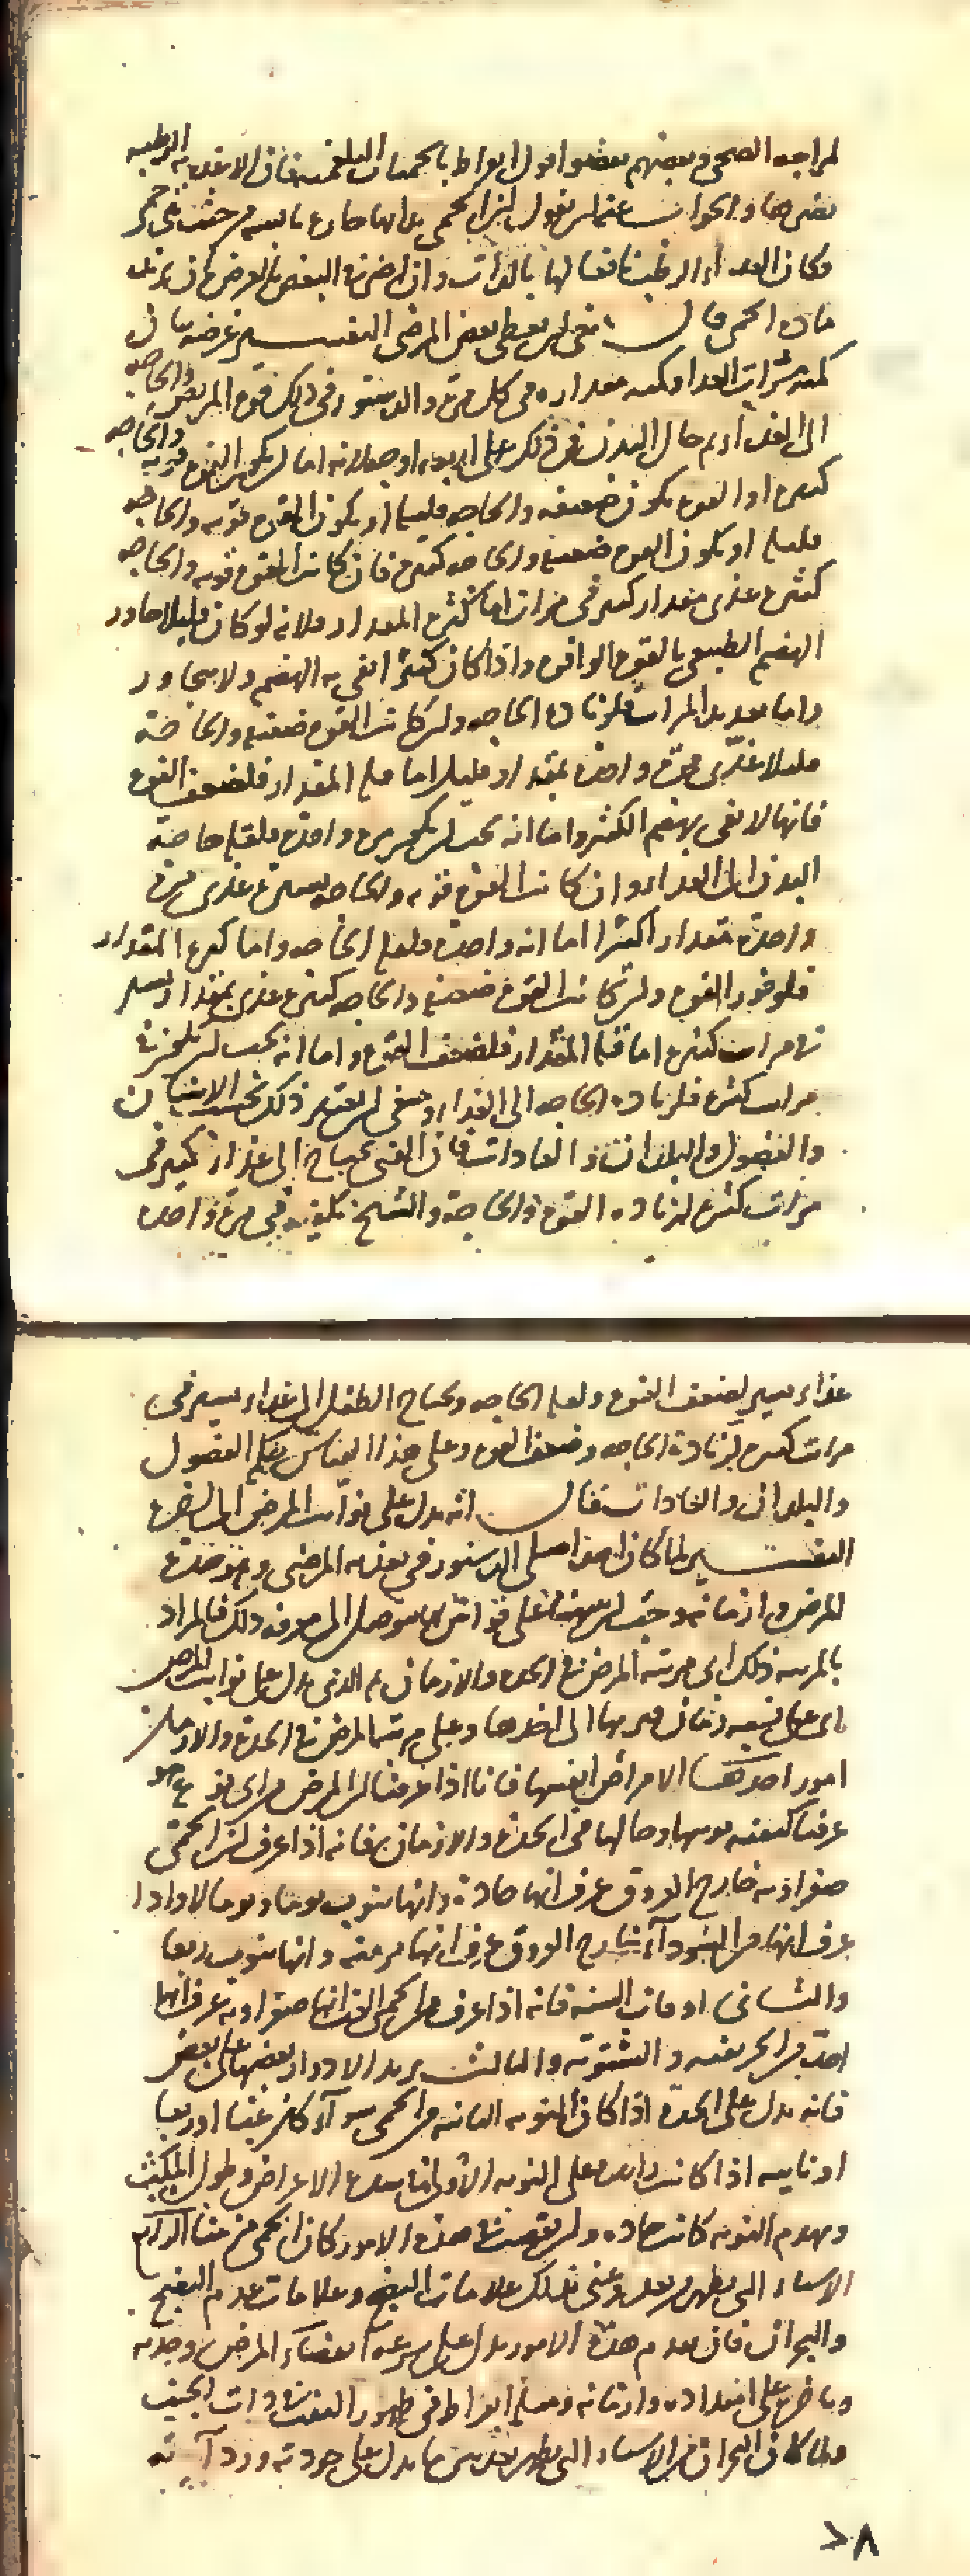 لمزاجه الصحي وبعضهم نقضوا قول ابقراط بالحميات البلغمية فان الاغذية الرطبة
تضرها والجواب عنه ان نقول ان الحمى بما انها حارة يابسة من حيث هي حمى
وكان الغذاء الرطب نافعا لها بالذات وان اضر في البعض بالعرض كان يزيد
مادة الحمى قال وينبغي ان يعطى بعض المرضى التفسير غرضه بيان
كمية مرات الغذاء وكمية مقداره في كل مرة والدستور في ذلك قوة المريض والحاجة
الى الغذاء ثم حال البدن في ذلك على اربعة اوجه لانه اما ان يكون القوة قوية والحاجة
كثيرة او القوة يكون ضعيفة والحاجة قليلة او يكون القوة قوية والحاجة
قليلة او يكون القوة ضعيفة والحاجة كثيرة فان كانت القوة قوية والحاجة
كثيرة غذي بمقدار كثير في مرات اما كثرة المقدار فلانه لو كان قليلا جاوز
الهضم الطبيعي بالقوة الوافرة واذا كان كثيرا تفي به الهضم ولا يجاوز
واما تعديد المرات فلزيادة الحاجة وان كانت القوة ضعيفة والحاجة
قليلة غذي مرة واحدة بمقدار قليل اما قلة المقدار فلضعف القوة
فانها لا تفي بهضم الكثير واما انه يجب ان يكون مرة واحدة فلقلة حاجة
البدن الى الغذاء وان كانت القوة قوية والحاجة يسيرة غذي مرة
واحدة بمقدار اكثر اما انه واحدة فلقلة الحاجة واما كثرة المقدار
فلوفور القوة وان كانت القوة ضعيفة والحاجة كثيرة غذي بمقدار يسير
في مرات كثيرة اما قلة المقدار فلضعف القوة واما انه يجب ان يكون في
مرات كثيرة فلزيادة الحاجة الى الغذاء وينبغي ان يعتبر ذلك بحسب الاسنان
والفصول والبلدان والعادات فان الفتى يحتاج الى غذاء كثير في
مرات كثيرة لزيادة القوة والحاجة والشيخ يكفيه في مرة واحدة
غذاء يسير لضعف القوة ولقلة الحاجة ويحتاج الطفل الى غذاء يسير في
مرات كثيرة لزيادة الحاجة وضعف القوة وعلى هذا القياس حكم الفصول
والبلدان والعادات قال انه يدل على نوائب المرض الى اخره
التفسير لما كان احد اصلي الدستور في تغذية المرضى وهو حدة
المرض وازمانه وجب ان ينبهنا على قوانين بها يتوصل الى معرفة ذلك فالمراد
بالمرتبة ذلك اي مرتبة المرض في الحدة والازمان ثم الذي يدل على نوائب المرض
اي على نسبة زمان من بها الى اخرها وعلى مرتبة المرض في الحدة والازمان
امور احدها الامراض انفسها فانا اذا عرفنا ان المرض من اي نوع هو
عرفنا كيفية نوبها وحالها في الحدة والازمان فانه اذا عرف ان الحمى
صفراوية خارج العروق عرف انها حادة وانها تنوب يوما ويوما لا واذا
عرف انها من السوداء خارج العروق عرف انها مزمنة وانها تنوب ربعا
والثاني اوقات السنة فانه اذا عرف من الحمى الغب انها صفراوية عرف انها
احد من الخريفية والشتوية والثالث تزيد الادوار بعضها على بعض
فانه يدل على الحدة اذا كان النوبة الثانية من الحمى سواء كانت غبا او ربعا
او نايبة اذا كانت زائدة على النوبة الاولى اما بشدة الاعراض وطول المكث
وتقدم النوبة كانت حادة وان نقصت هذه الامور كان الحمى مزمنا الرابع
الاشياء التي تظهر بعد وعنى بذلك علامات النضج وعلامات عدم النضج
والبحران فان تقدم هذه الامور يدل على سرعة انقضاء المرض وحدته
وتاخرها على امتداده وازمانه ومثله ابقراط في ظهور النفث في ذات الجنب
ولما كان البحران من الاشياء التي تظهر بعد بين ما يدل على جودته وردائته
٢٨